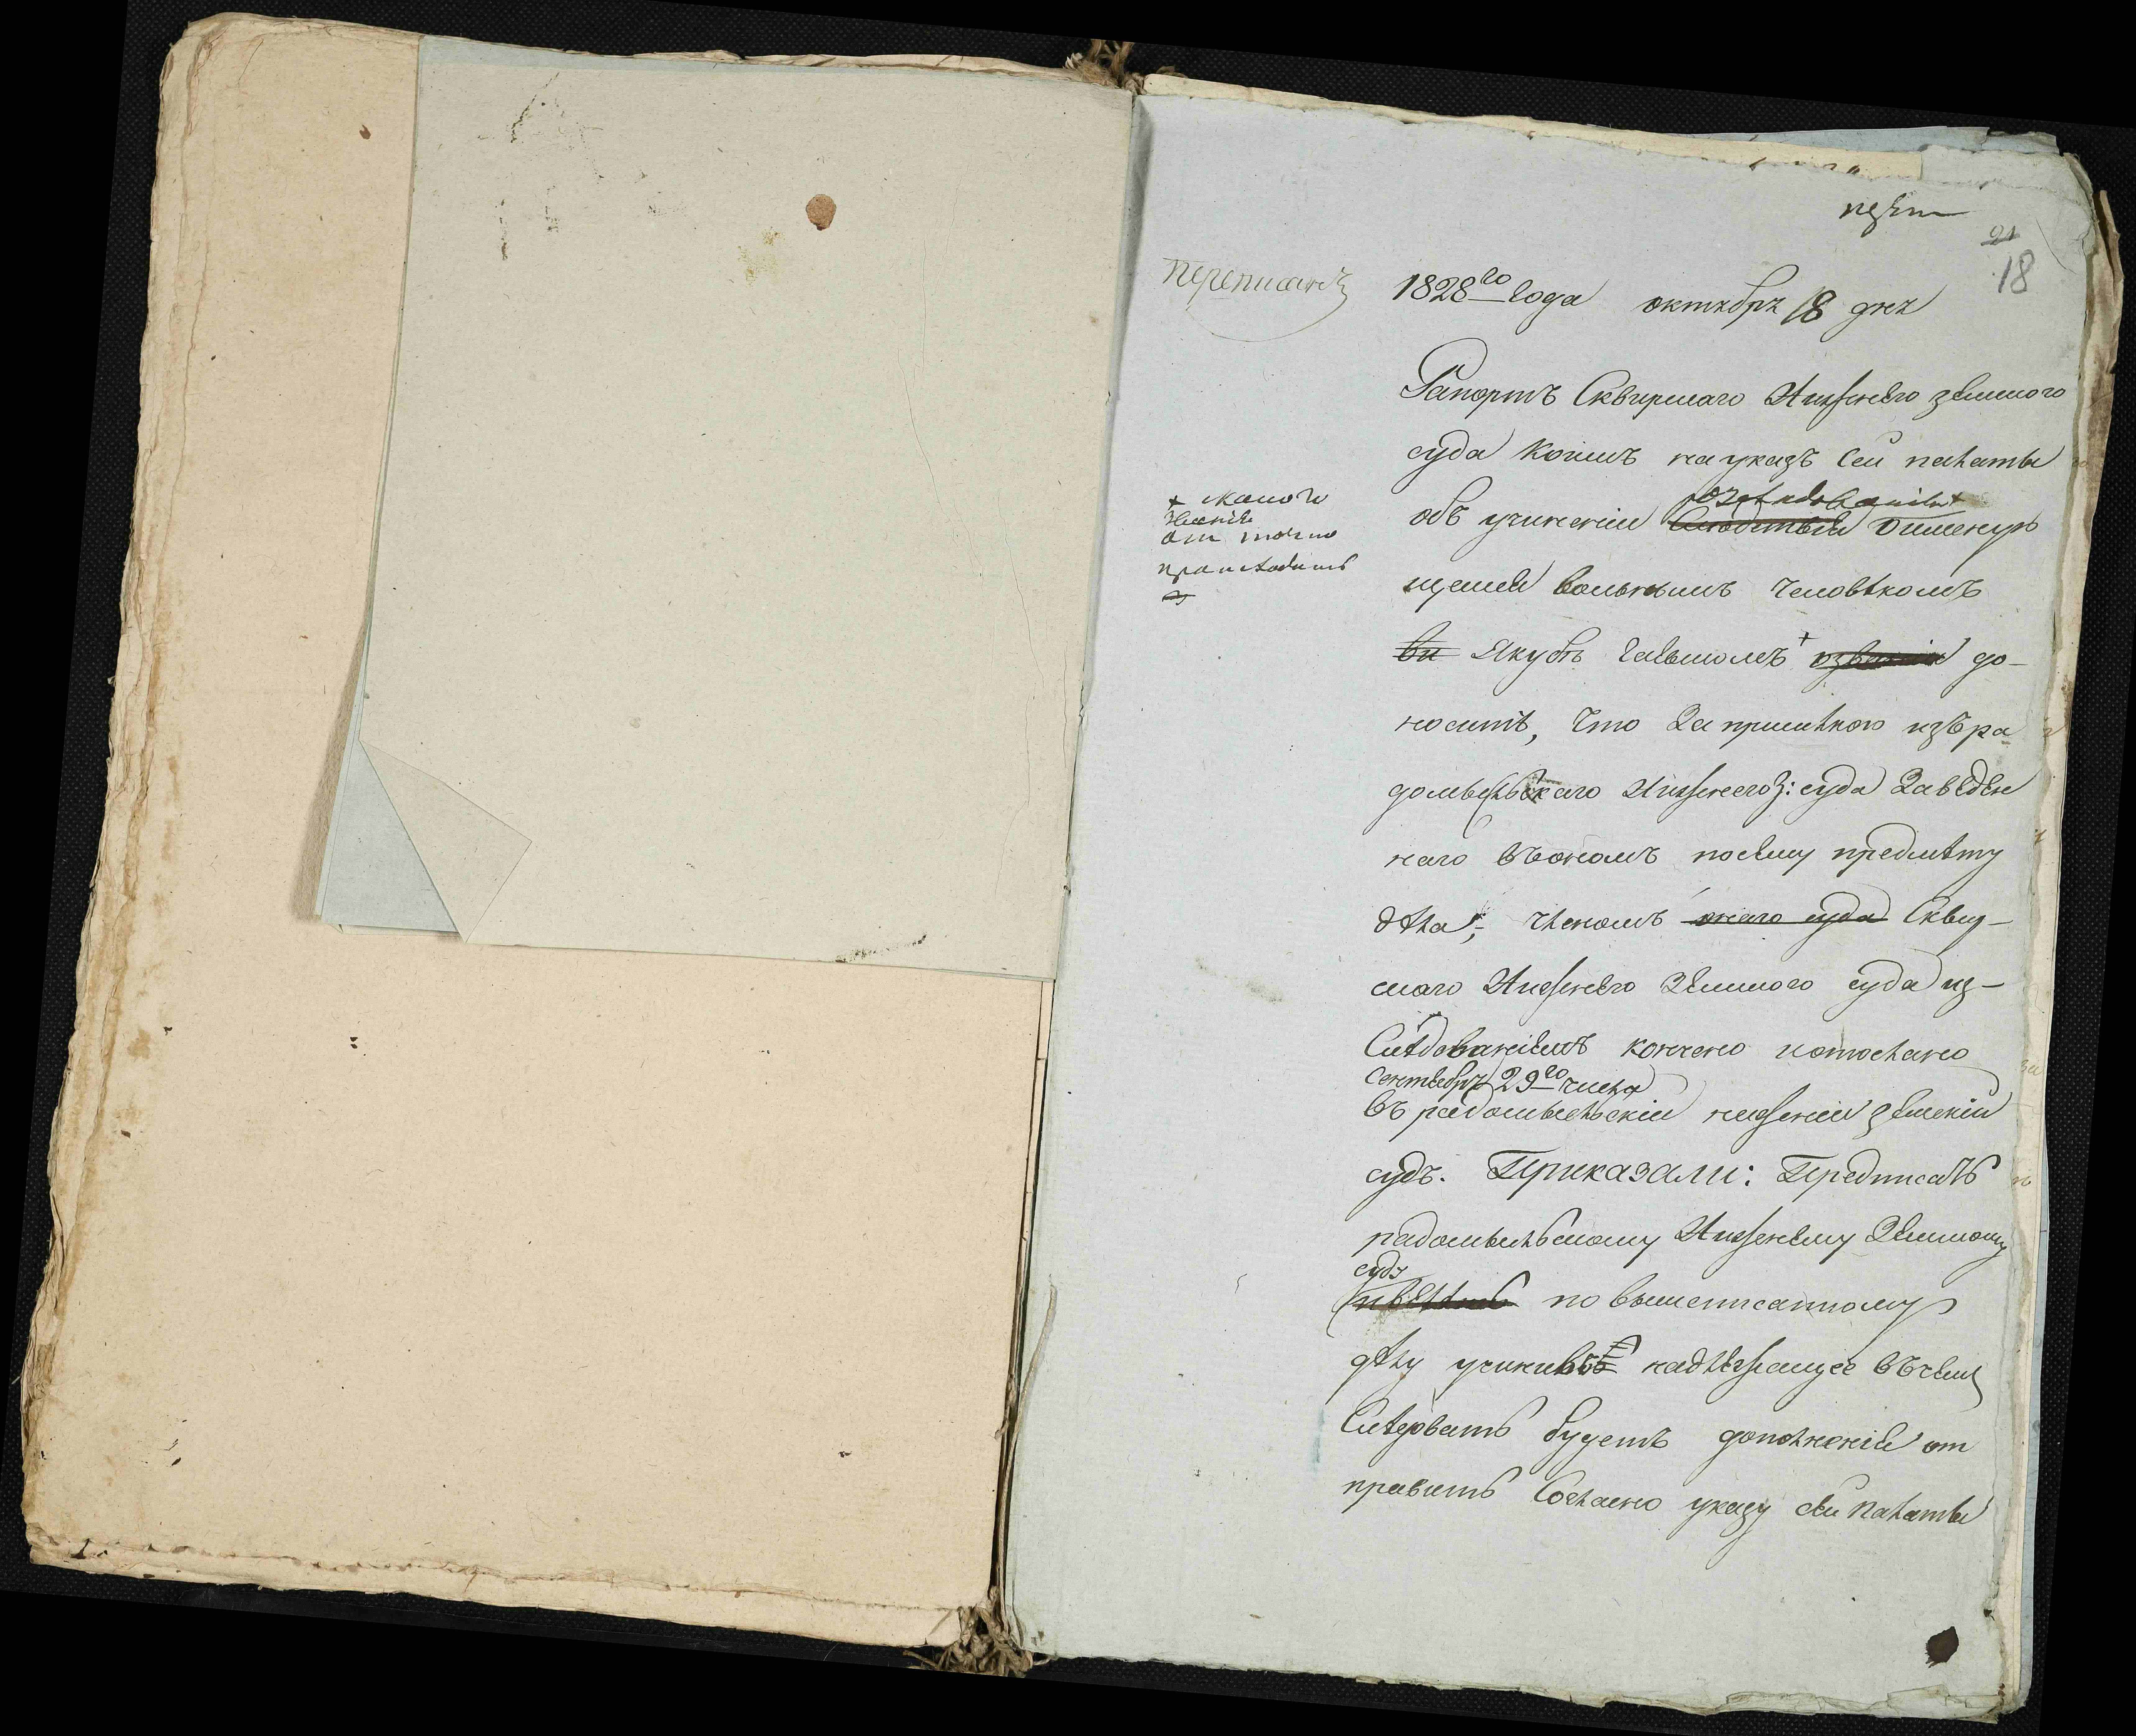 21
18
переписанъ
1828го года октября 18 дня
Рапортъ Сквирскаго Нижнего земского
суда коимъ на указъ сей палаты
объ учинении изследования Следствия о именую
щемся вольнымъ человѣкомъ
Якубѣ до-
носитъ, что за присылкою изъ ра
домысльскаго Нижнего з: суда заведен
наго въ ономъ по сему предмету
дѣла, членомъ онаго суда Сквир-
скаго Нижнего Земского суда из-
слѣдованиемъ кончено и отослано
сентября 29го числа
въ радомысльский нижний земский
судъ. Приказали: Предписать
радомысльскому Нижнему Земскому
суду
по вышеписанному
дѣлу учинивъ надлежащее въ чемъ
слѣдовать будетъ дополнение от
править согласно указу сей палаты
+ какого
звания
он точно
происходитъ